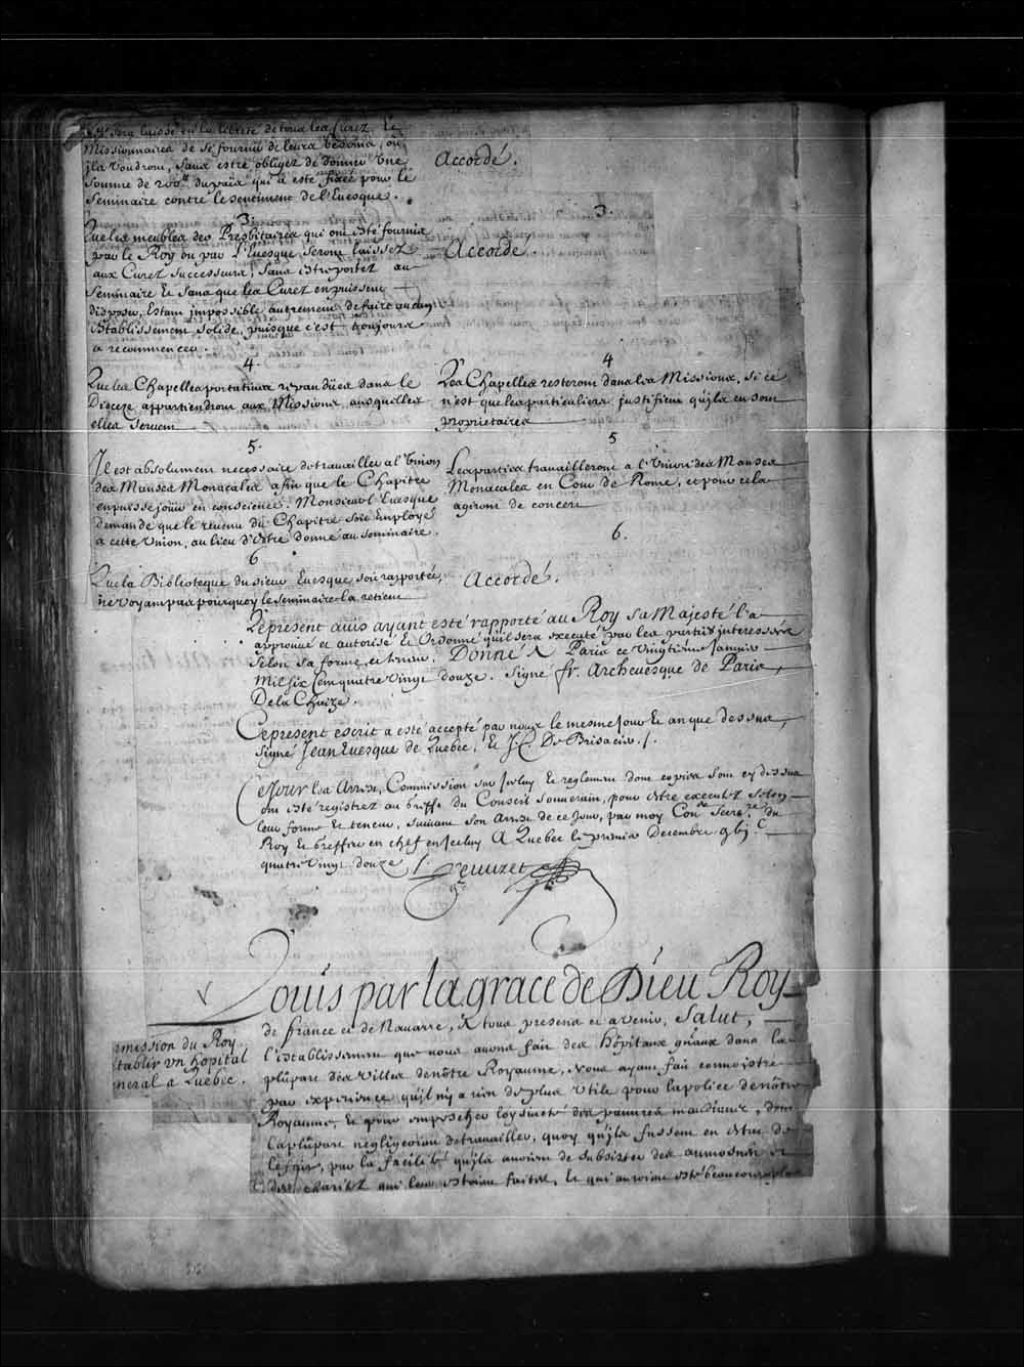 sera laissé en la liberté de tous les Curez Et
Missionnaires de se fournir de leurs besoins, ou
jls Voudront, sans estre obligez de donner Une
somme de 200ᵗᵗ dupaïs qui a esté fixée pour le
Seminaire contre le sentiment de l'Euesque.
Accordé.
3.
Que les meubles des Presbitaires qui ont Esté fournis
par le Roy ou par l'Euesque seront laissez
aux Curez Successeurs, sans Estre portez au
Seminaire Et sans que les Curez en puissent
disposer, Estant impossible autrement de faire aucun
Establissement solide, puisque c'est toujours
a recommencer.
3.
Accordé.
4.
Que les Chapelles portatiues repanduës dans le
Dioceze appartiendront aux Missions, ausquelles
elles seruent
4
Les Chapelles resteront dans les Missions, si ce
n'est que les particuliers justifient qu'jls en sont
proprietaires
5.
Jl est absolument necessaire de trauailler a l'Vnion
des Manses Monacales afin que le Chapitre
en puisse joüir en conscience. Monsieur l'Euesque
demande que le reuenu du Chapitre soit Employé
a cette Vnion, au lieu d'Estre donné au seminaire.
5
Les parties trauailleront a l'Vnion des Manses
Monacales en Cour de Rome, et pour cela
agiront de concert
6
Que la Biblioteque du sieur Euesque soit rapportée,
ne voyant pas pourquoy le seminaire la retient
6.
Accordé.
Le present auis ayant esté rapporté au Roy sa Majesté l'a
approuué et autorisé Et Ordonné qu'il sera executé par les parties interessées
selon sa forme et teneur. Donné A Paris ce vingtieme Januier
mil six Cent quatre vingt douze. Signé fr. Archeuesque de Paris,
De la Chaize.
Ce present escrit a esté accepté par nous le mesme jour Et an que dessus,
signé Jean Euesque de Quebec, Et J. C. De Brisacier ./.
Ce Jour les Arrest, Commission sur jceluy Et reglement dont copies sont cy dessus
ont esté registrez au Greffe du Conseil Souuerain, pour Estre executez selon
leur forme Et teneur, suiuant son Arrest de ce Jour, par moy Conᵉʳ Secreᵗʳᵉ du
Roy Et Greffier en chef en jceluy A Quebec le premier Decembre gbj ᶜ
quatre vingt douze /. Peuuret
Louis par la grace de Dieu Roy
de france et de Nauarre, A tous presens et a venir, Salut,
l'establissement que nous auons fait des hôpitaux gñaux dans la
plûpart des villes de nôtre Royaume, Nous ayant fait connoistre
par experience qu'jl n'y a rien de plus Vtile pour la police de nôtre
Royaume, Et pour empescher l'oysiueté des pauures mandians, dont
la plûpart négligeoient de trauailler, quoy qu'jls fussent en estat de
le fair, par la facilité qu'jls auoient de subsister des aumosnes et
des charitez qui leur estoient faites, Et qui auroient esté beaucoup plus
mission du Roy
establir vn hopital
neral a Quebec.